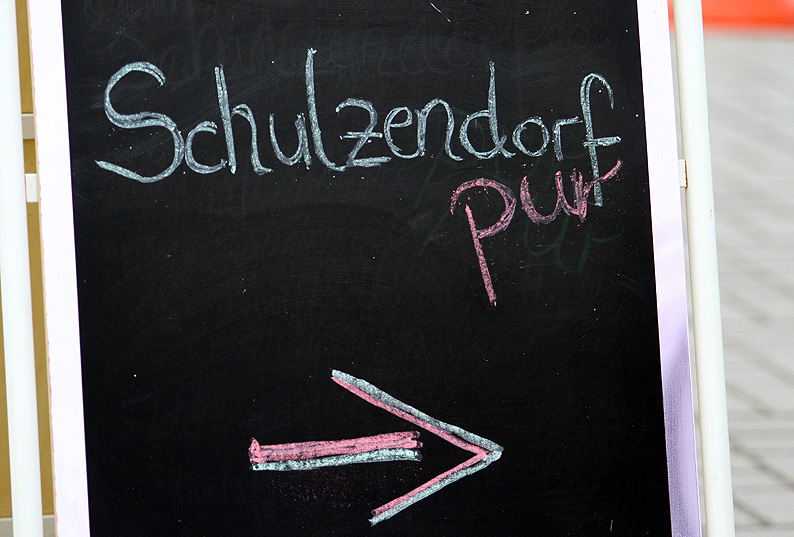 Schulzendorf
pur